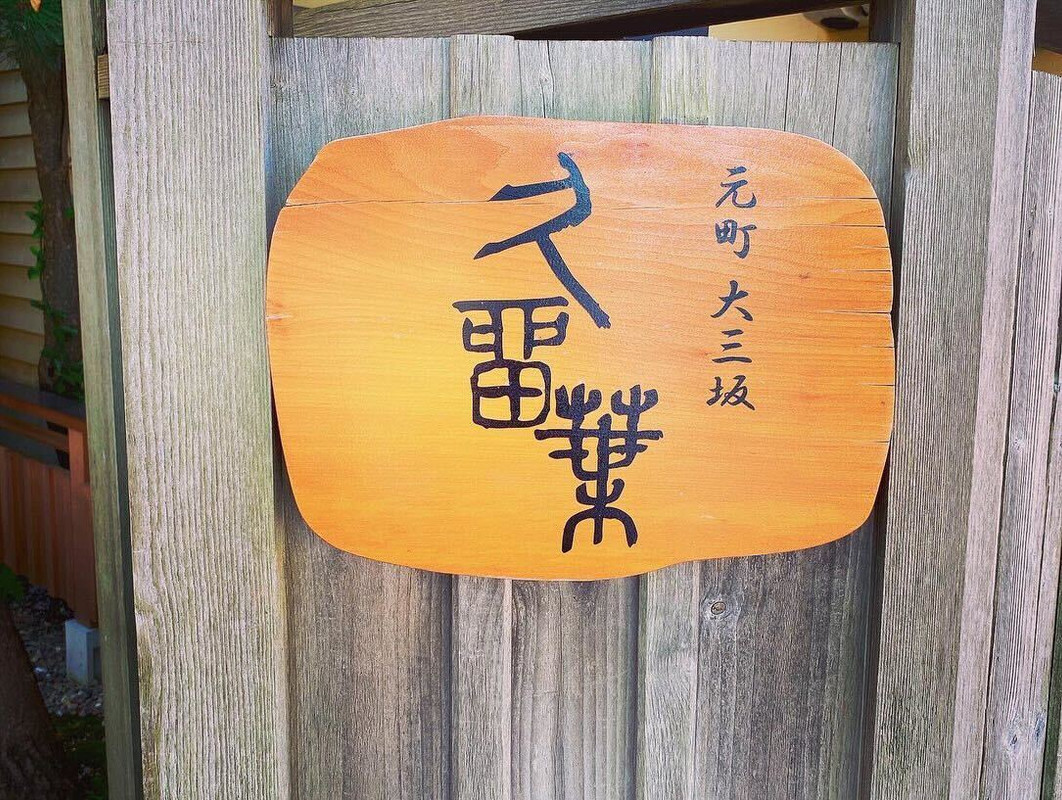 元町 大三坂
久留葉